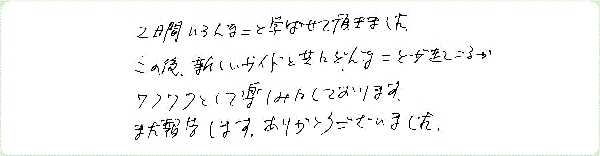 2日間いろんなこと学ばせて頂きました。
この後、新しいガイドと共にどんなことが起こるか
ワクワクとして楽しみにしております。
また報告します。ありがとうございました。